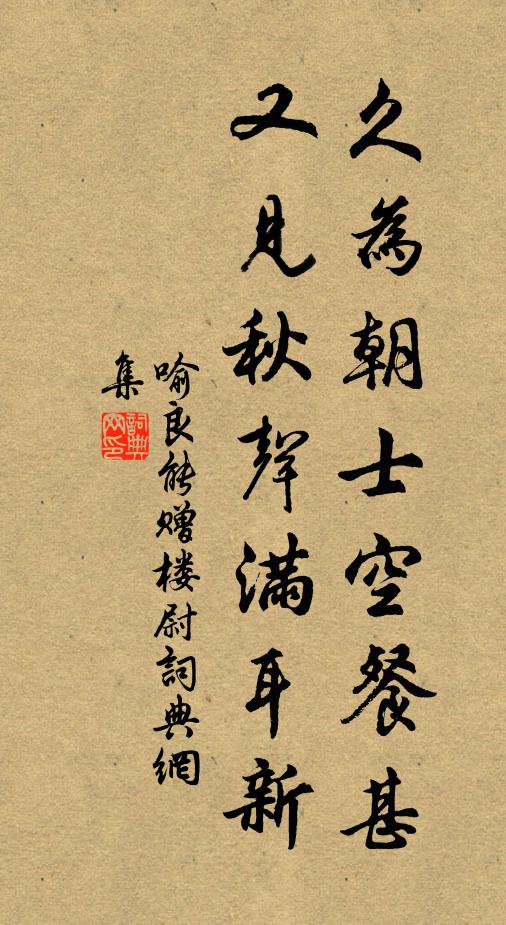 久為朝士空餐甚
又見秋聲滿耳新
喻良能贈楼尉詞典網
集
詞典網印